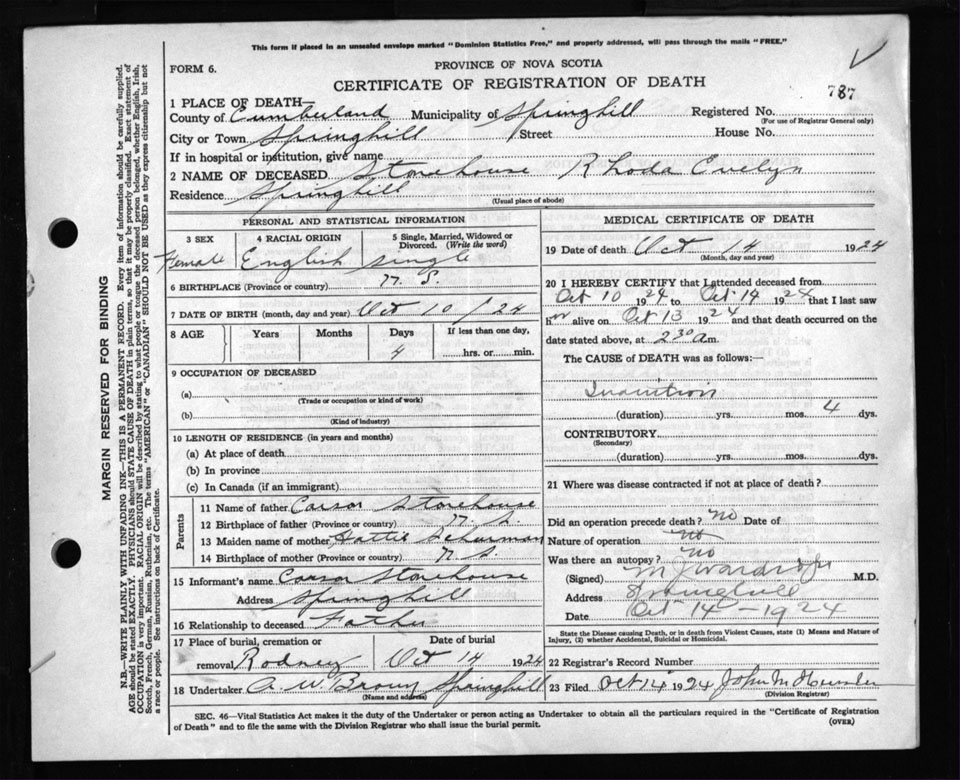 This form if placed in an unsealed envelope marked "Dominion Statistics Free," and properly addressed, will pass through the mails "FREE."
FORM 6.
PROVINCE OF NOVA SCOTIA
CERTIFICATE OF REGISTRATION OF DEATH
787
1 PLACE OF DEATH—
County of Cumberland Municipality of Springhill Registered No.
(For use of Registrar General only)
City or Town Springhill Street House No.
If in hospital or institution, give name
2 NAME OF DECEASED Stonehouse Rhoda Evelyn
Residence Springhill
(Usual place of abode)
PERSONAL AND STATISTICAL INFORMATION
3 SEX 4 RACIAL ORIGIN 5 Single, Married, Widowed or Divorced. (Write the word)
Female English single
6 BIRTHPLACE (Province or country) N. S.
7 DATE OF BIRTH (month, day and year) Oct 10/24
8 AGE Years Months Days If less than one day,
4 hrs. or min.
9 OCCUPATION OF DECEASED
(a)
(Trade or occupation or kind of work)
(b)
(Kind of industry)
10 LENGTH OF RESIDENCE (in years and months)
(a) At place of death
(b) In province
(c) In Canada (if an immigrant)
Parents
11 Name of father Carson Stonehouse
12 Birthplace of father (Province or country) N. S.
13 Maiden name of mother Hattie Schurman
14 Birthplace of mother (Province or country) N S
15 Informant's name Carson Stonehouse
Address Springhill
16 Relationship to deceased Father
17 Place of burial, cremation or Date of burial
removal Rodney Oct 14 1924
18 Undertaker A. W. Brown Springhill
(Name and address)
MEDICAL CERTIFICATE OF DEATH
19 Date of death Oct 14 1924
(Month, day and year)
20 I HEREBY CERTIFY that I attended deceased from
Oct 10 1924 to Oct 14 1924 that I last saw
her alive on Oct 13 1924 and that death occurred on the
date stated above, at 2 30 a m.
The CAUSE of DEATH was as follows:—
Inanition
(duration) yrs. mos. 4 dys.
CONTRIBUTORY
(Secondary)
(duration) yrs. mos. dys.
21 Where was disease contracted if not at place of death?
Did an operation precede death? No Date of
Nature of operation no
Was there an autopsy? no
(Signed) M.D.
Address Springhill
Date Oct 14 - 1924
State the Disease causing Death, or in death from Violent Causes, state (1) Means and Nature of
Injury, (2) whether Accidental, Suicidal or Homicidal.
22 Registrar's Record Number
23 Filed Oct 14 1924 John M
(Division Registrar)
SEC. 46—Vital Statistics Act makes it the duty of the Undertaker or person acting as Undertaker to obtain all the particulars required in the "Certificate of Registration
of Death" and to file the same with the Division Registrar who shall issue the burial permit.
(OVER)
MARGIN RESERVED FOR BINDING
N.B.—WRITE PLAINLY WITH UNFADING INK—THIS IS A PERMANENT RECORD. Every item of information should be carefully supplied.
AGE should be stated EXACTLY. PHYSICIANS should STATE CAUSE OF DEATH in plain terms, so that it may be properly classified. Exact statement of
OCCUPATION is very important. RACIAL ORIGIN will be described by stating to what people or tongue the deceased person belonged, whether English, Irish,
Scotch, French, German, Russian, Ruthenian, etc. The terms "AMERICAN" or "CANADIAN" SHOULD NOT BE USED as they express citizenship but not
a race or people. See instructions on back of Certificate.